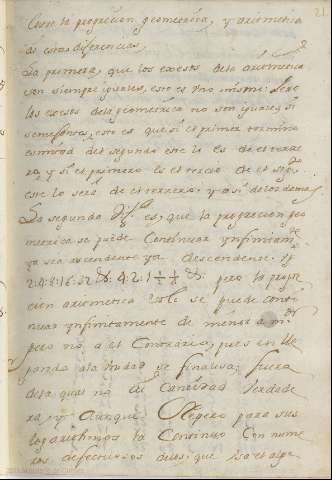 21
Entre la progresion geometrica, y arismetica
ay estas diferencias.
La primera, que los excess. de la arismetica
son siempre iguales, esto es Uno mismo: Pero
los excess. de la geometrica no son iguales, si
semejantes, esto es que si el primer termino
es mitad del segundo este lo es del tercero
y si el primero es el tercio del segdo
este lo será del tercero, y asi de los demas
La segunda es, que la progresion geo
metrica se puede Continuar ynfinitamte
ya sea ascendente ya descendente.
2.4.8.16.32 &. 4.2.1 ½ ¼ &. pero la progre
cion arismetica solo se puede conti
nuar ynfinitamente de menor a mor
pero no a el Contrario, pues en lle
gando a la Unidad se finalisa, fuera
de la qual no ay Cantidad Verdade
ra, y Aunque Nepero para sus
logarithmos la Continuo Con nume
ros defectivos de los que